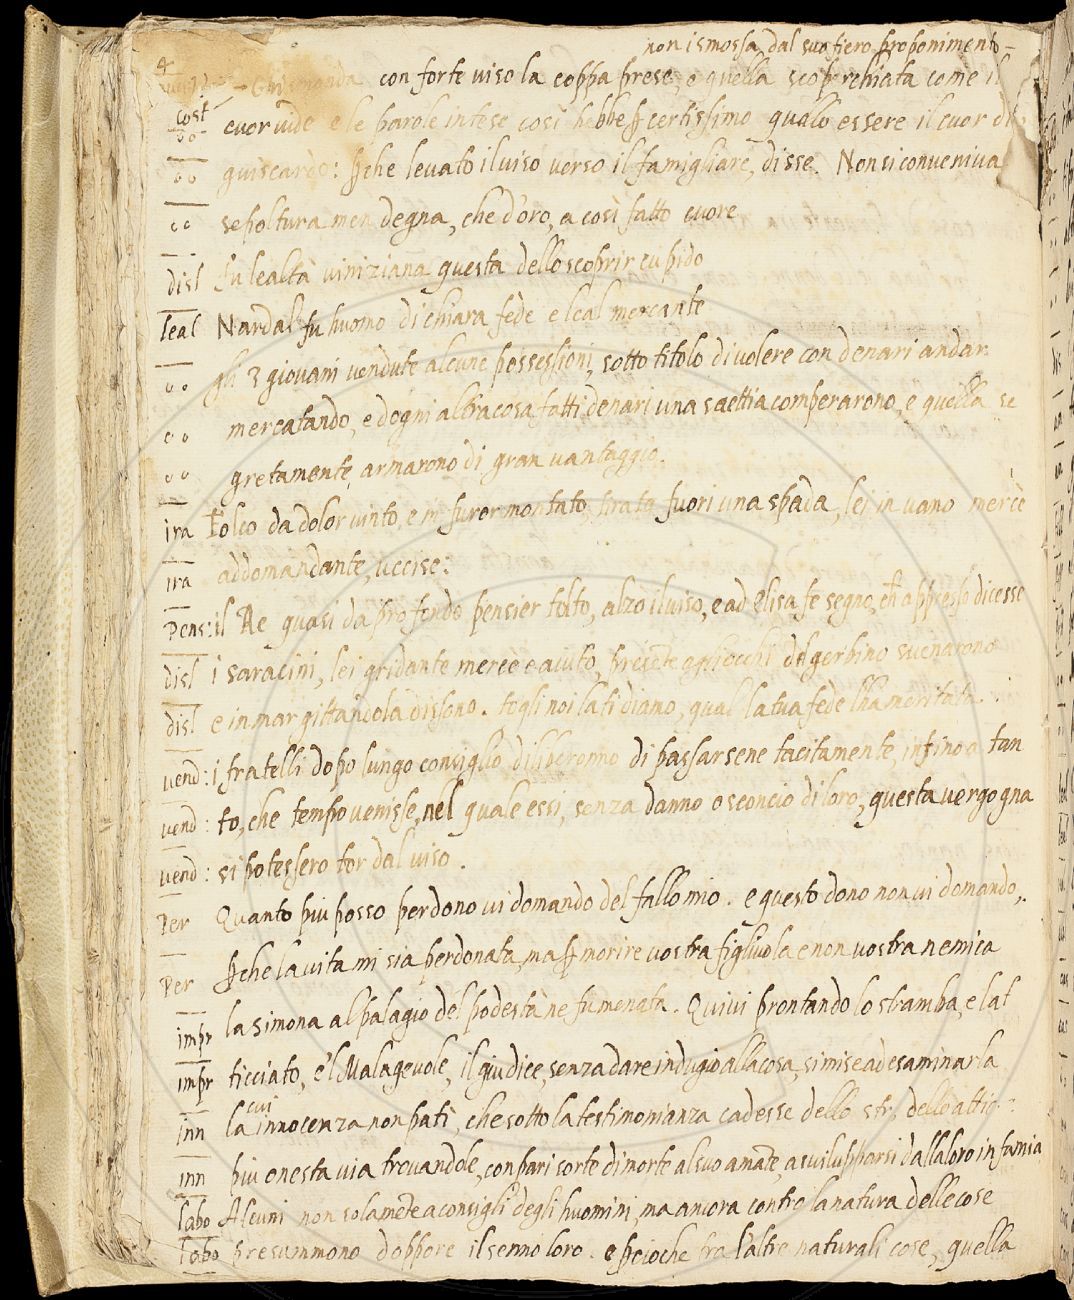 non ismossa dal suo fiero proponimento
4
Gismonda con forte viso la coppa prese, e quella scoperchiata come il
cost cuor vide e le parole intese così hebbe p certissimo quello essere il cuor di
guiscardo: pche levato il viso verso il famigliare, disse. Non si conveniva
sepoltura men degna, che d'oro, a così fatto cuore
disl fu lealtà viniziana questa dello scoprir cupido
leal Nardal fu huomo di chiara fede e leal mercante
gli 3 giovani vendute alcune possessioni, sotto titolo di volere con denari andar
mercatando, e d'ogni altra cosa fatti denari una saettia comperarono, e quella se
gretamente armarono di gran vantaggio.
ira Folco da dolor vinto, e in furor montato, tirata fuori una spada, lei in vano mercè
ira addomandante, uccise:
Pens: il Re quasi da profondo pensier tolto, alzo il viso, e ad Elisa fe segno, ch appresso dicesse
disl i saracini, lei gridante mercè e aiuto, presente agli occhi del gerbino svenarono
disl e in mar gittandola dissono. togli noi la ti diamo, qual la tua fede l'ha meritata.
vend: i fratelli dopo lungo consiglio diliberonno di passarsene tacitamente, infino a tan
vend: to, che tempo venisse, nel quale essi, senza danno o sconcio di loro, questa vergogna
vend: si potessero tor dal viso.
Per Quanto piu posso perdono vi domando del fallo mio. e questo dono non vi domando,
Per pche la vita mi sia perdonata, ma p morire vostra figliuola e non vostra nemica
impr la simona al palagio del podestà ne fu menata. Quivi prontando lo stramba, e l'at
impr ticciato, e'l Malagevole, il giudice, senza dare indugio alla cosa, si mise ad esaminarla
cui
inn la innocenza non patì, che sotto la testimonianza cadesse dello str, dello attic:
inn piu onesta via trovandole, con pari sorte di morte al suo amate, a svilupparsi dalla loro infamia
labo Alcuni non solamete a consigli degli huomini, ma ancora contro la natura delle cose
labo presummono d'oppore il senno loro. e pcioche tra l'altre naturali cose, quella